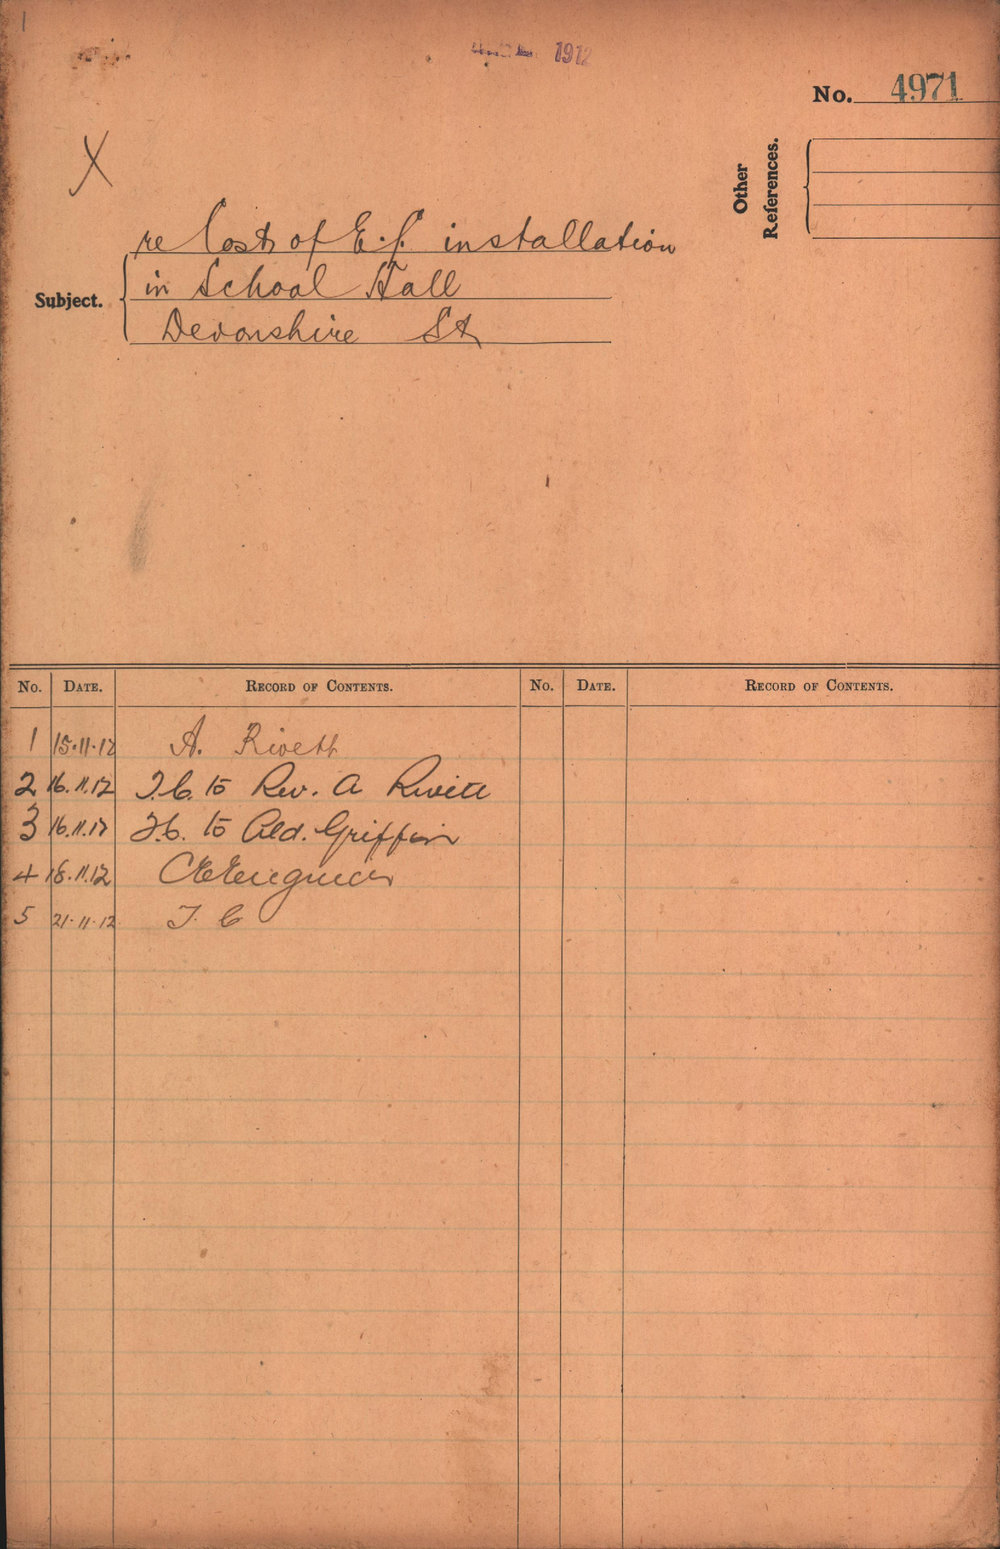 1
1912
No. 4971
X
Other
References.
re Cost of E.L. installation
in School Hall
Devonshire St
Subject.
No. DATE. RECORD OF CONTENTS. No. DATE. RECORD OF CONTENTS.
1 15.11.12 A. Rivett
2 16.11.12 T.C. to Rev. A Rivett
3 16.11.12 T.C. to Ald. Griffin
4 18.11.12 C E Engineer
5 21.11.12 T. C